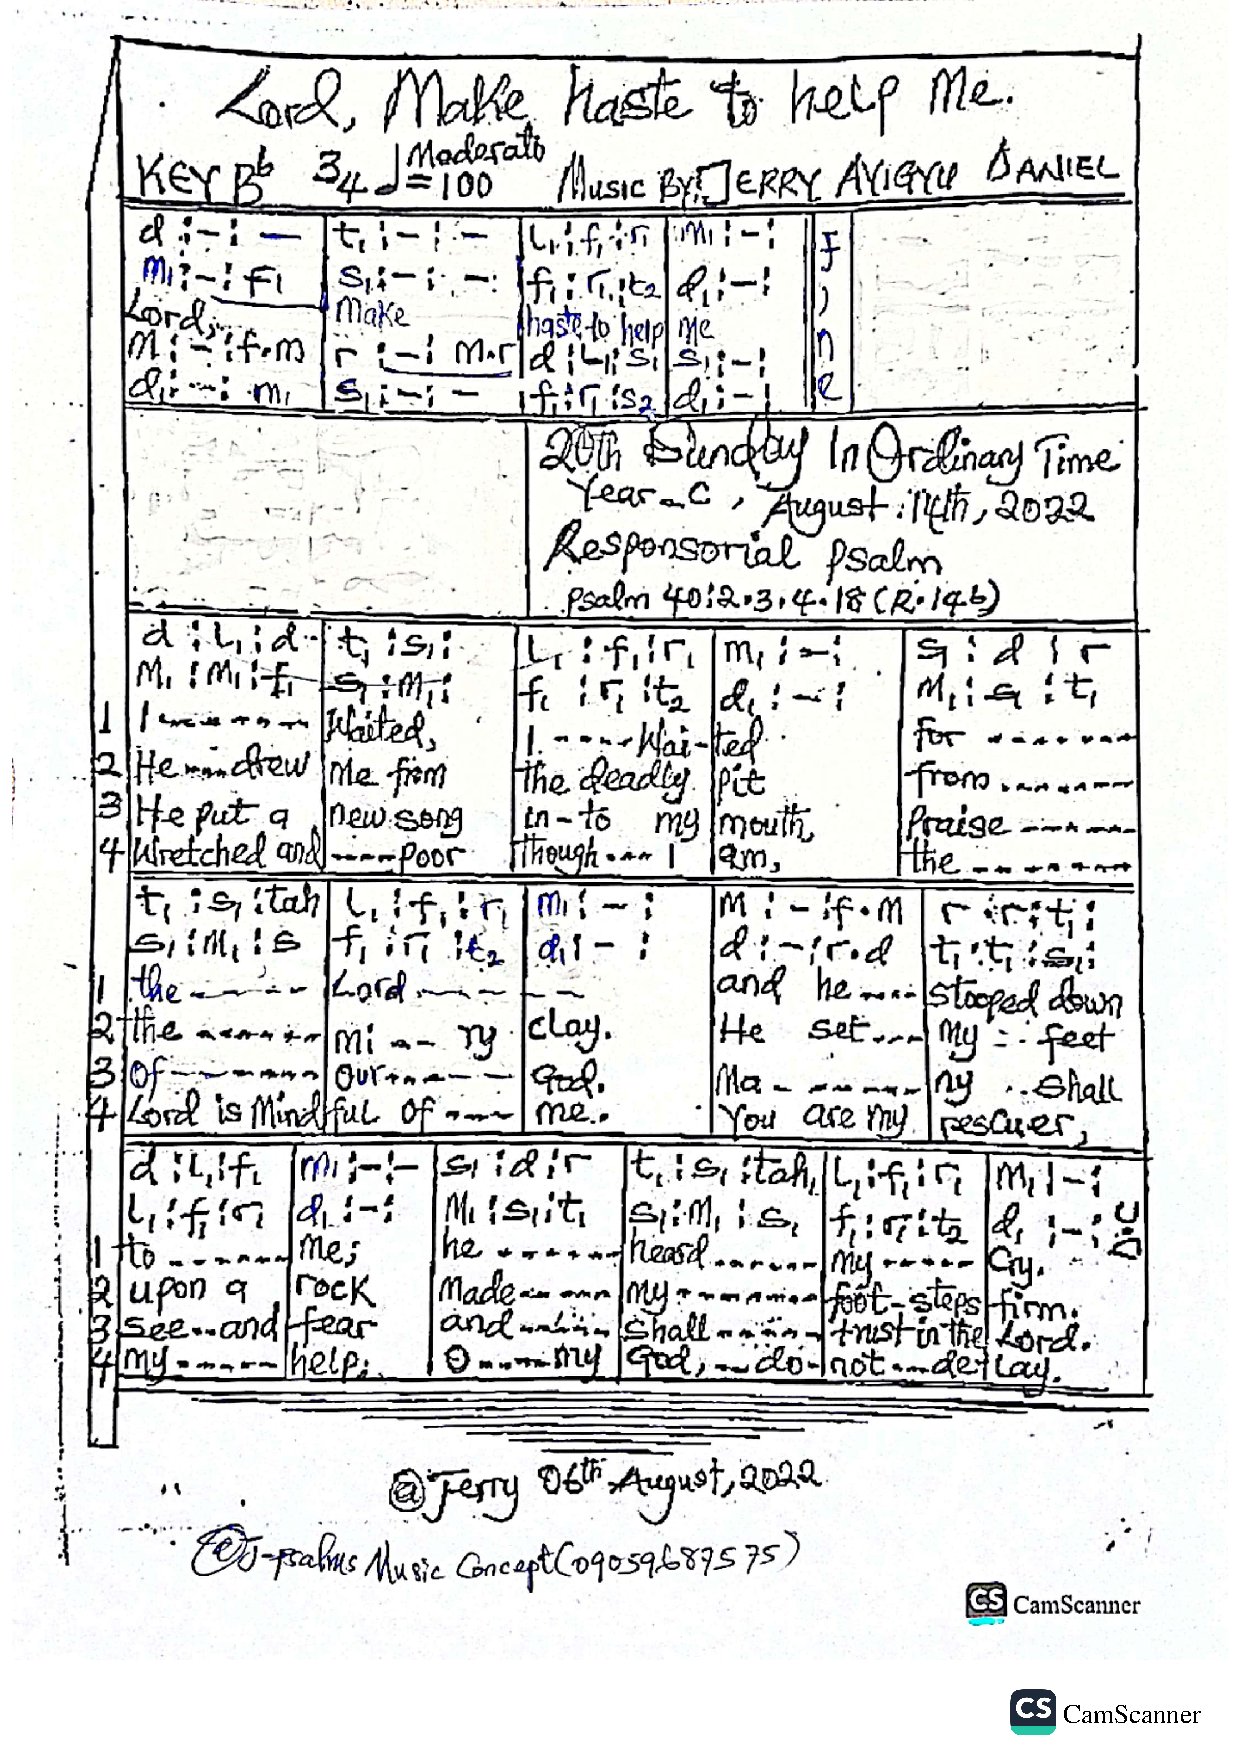 Lord, Make haste to help Me.
KEY Bb 3/4 ♩=100 Moderato Music By: JERRY AYIGYU DANIEL
d :-: - | t₁ :-: - | l₁ : f₁ : r₁ | m₁ :-: | Fine
m₁ :-: f₁ | s₁ :-: -: | f₁ : r₁ : t₂ | d₁ :-:
Lord, | Make | haste to help | me
m :-: f.m | r :-: m.r | d : l₁ : s₁ | s₁ :-:
d₁ :-: m₁ | s₁ :-: - | f₁ : r₁ : s₂ | d₁ :-:
20th Sunday In Ordinary Time
Year-C, August 14th, 2022
Responsorial Psalm
Psalm 40:2.3.4.18 (R.14b)
d : l₁ : d | t₁ : s₁ : | l₁ : f₁ : r₁ | m₁ :-: | s₁ : d : r
m₁ : m₁ : f₁ | s₁ : m₁ : | f₁ : r₁ : t₂ | d₁ :-: | m₁ : s₁ : t₁
1 I ------- | Waited, | I ---- Wai- | ted | for -------
2 He --- drew | me from | the deadly | pit | from -------
3 He put a | new song | in-to my | mouth, | Praise ------
4 Wretched and | ---- poor | though --- I | am, | the --------
t₁ : s₁ : tah | l₁ : f₁ : r₁ | m₁ : - : | m : - : f.m | r : r : t₁ :
s₁ : m₁ : s | f₁ : r₁ : t₂ | d₁ : - : | d : - : r.d | t₁ : t₁ : s₁ :
1 the ------ | Lord ------ | -- | and he ---- | stooped down
2 the ------- | mi -- ry | clay. | He set --- | my -- feet
3 Of ------- | our ------ | God. | Ma- ------ | ny -- shall
4 Lord is Mind | ful of ---- | me. | You are my | rescuer,
d : l₁ : f₁ | m₁ :-:- | s₁ : d : r | t₁ : s₁ : tah₁ | l₁ : f₁ : r₁ | m₁ :-:
l₁ : f₁ : r₁ | d₁ :-: | m₁ : s₁ : t₁ | s₁ : m₁ : s₁ | f₁ : r₁ : t₂ | d₁ :-: D.C
1 to ------ | me; | he ------ | heard ------ | my ----- | Cry.
2 upon a | rock | Made ----- | my ------- | foot-steps | firm.
3 see -- and | fear | and ------ | shall ------ | trust in the | Lord.
4 my ----- | help; | O ---- my | God, -- do | not -- de- | lay.
@Jerry 06th August, 2022
@J-psalms Music Concept (09059687575)
CS CamScanner
CS CamScanner